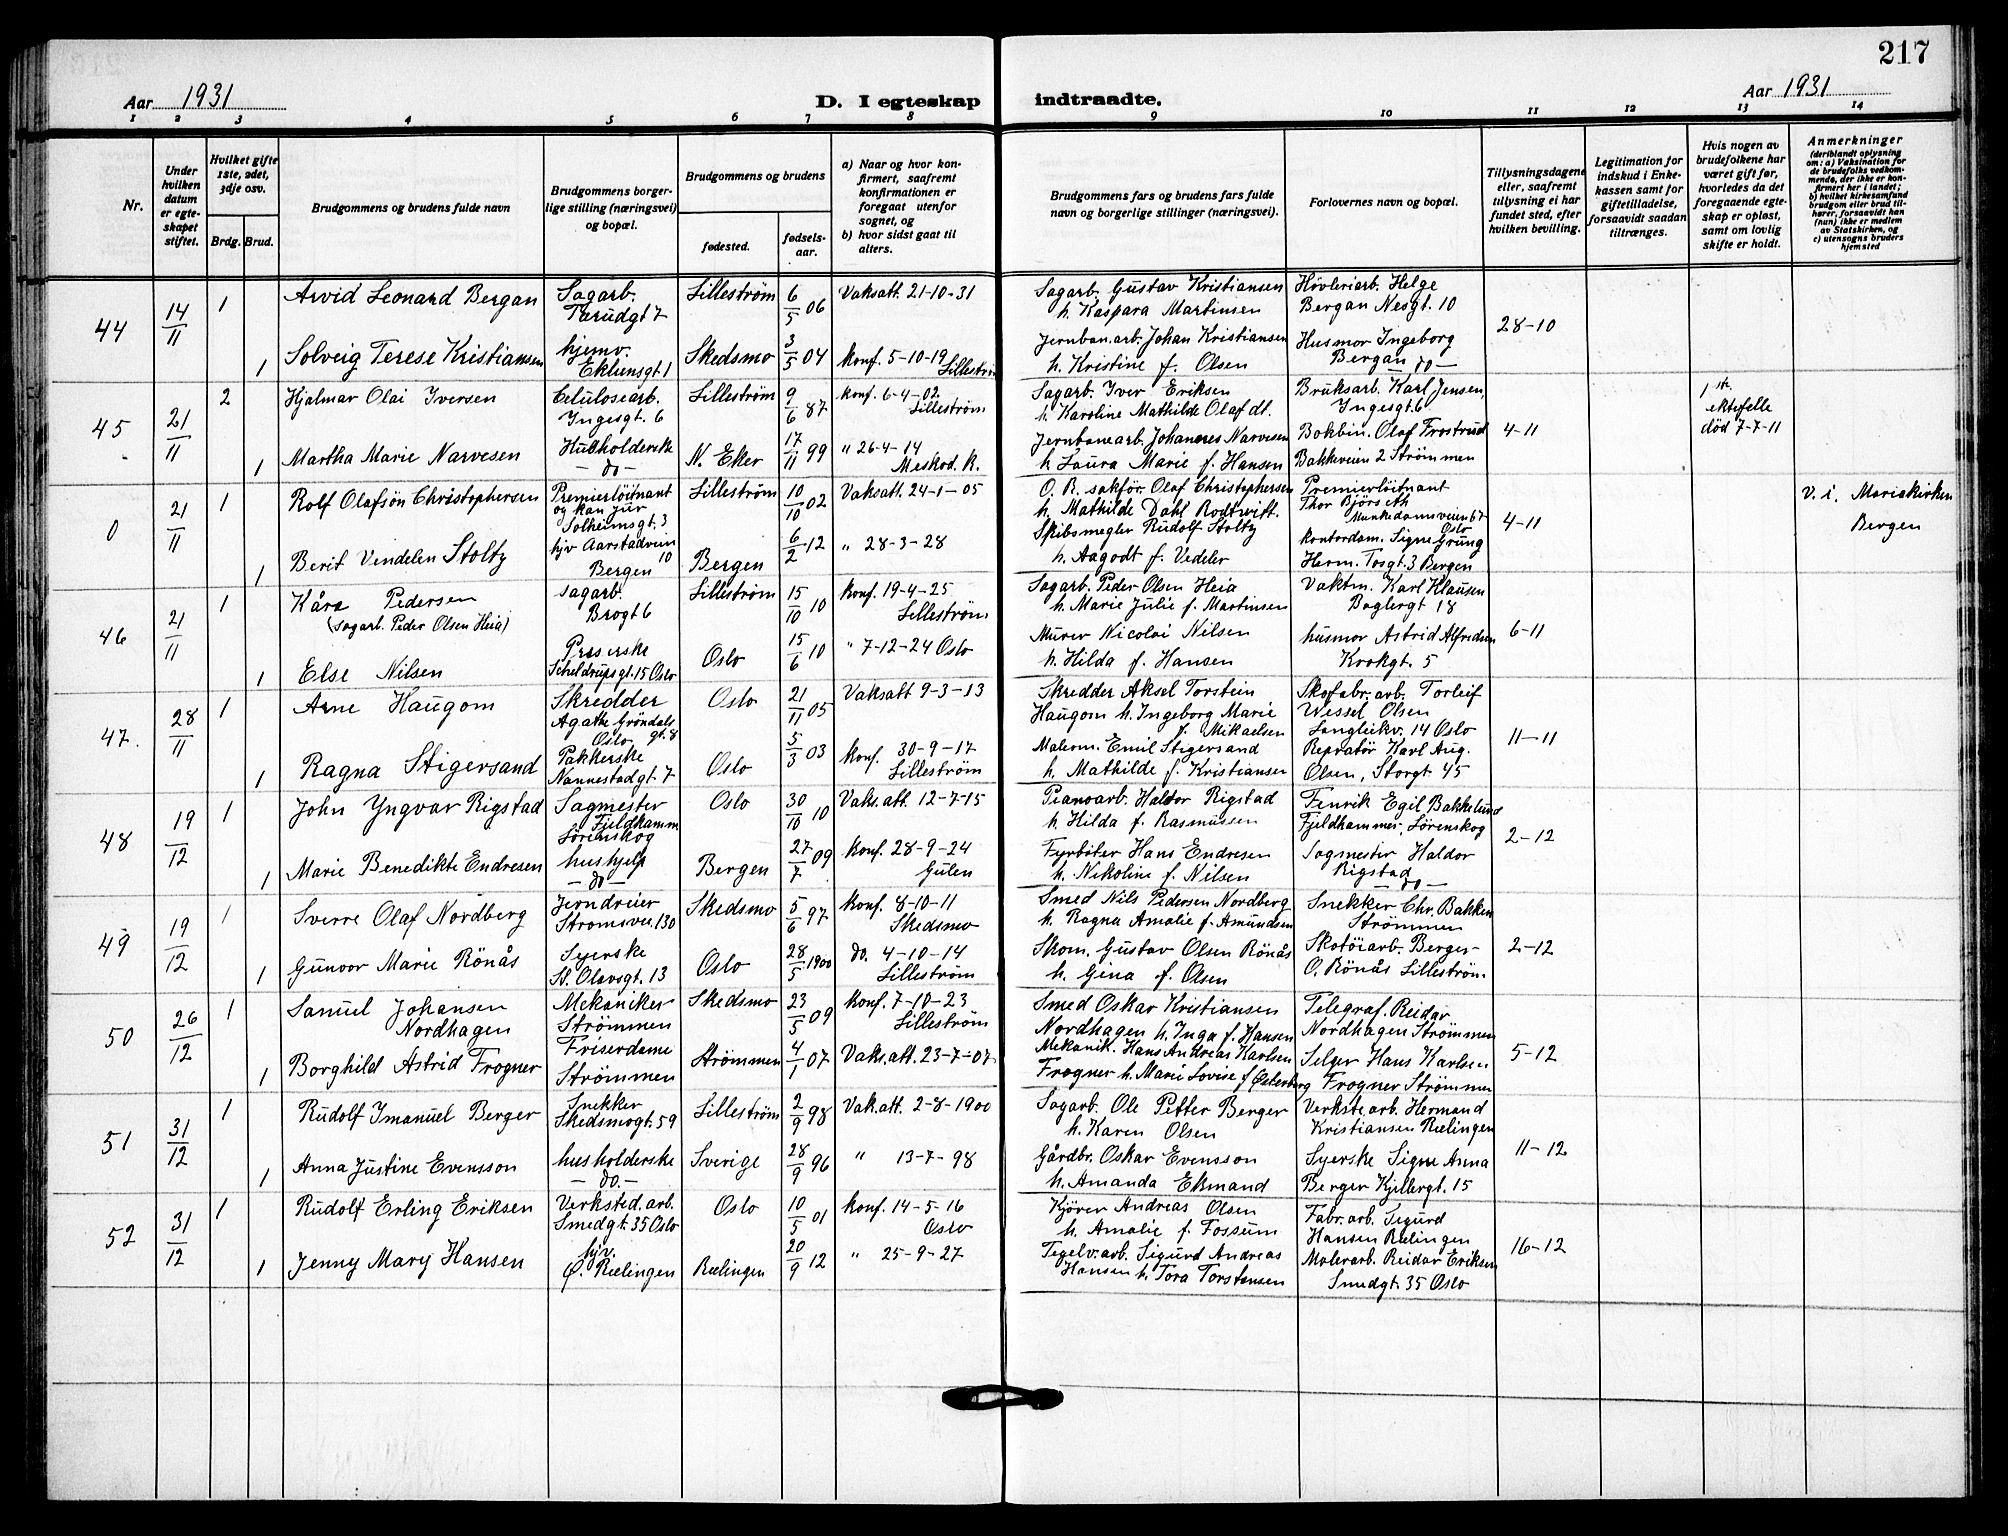 217
Aar 1931
D. I egteskap indtraadte.
Aar 1931
1 2 3 4 5 6 7 8 9 10 11 12 13 14
Nr.
Under hvilken datum er egteskapet stiftet.
Hvilket gifte 1ste, 2det, 3dje osv.
Brdg. Brud.
Brudgommens og brudens fulde navn
Brudgommens borgerlige stilling (næringsvei) og bopæl.
Brudgommens og brudens
fødested.
fødselsaar.
a) Naar og hvor konfirmert, saafremt konfirmationen er foregaat utenfor sognet, og
b) hvor sidst gaat til alters.
Brudgommens fars og brudens fars fulde navn og borgerlige stillinger (næringsvei).
Forlovernes navn og bopæl.
Tillysningsdagene eller, saafremt tillysning ei har fundet sted, efter hvilken bevilling.
Legitimation for indskud i Enkekassen samt for giftetilladelse, forsaavidt saadan tiltrænges.
Hvis nogen av brudefolkene har været gift før, hvorledes da det foregaaende egteskap er opløst, samt om lovlig skifte er holdt.
Anmerkninger
(deriblandt oplysning om: a) Vaksination for de brudefolks vedkommende, der ikke er konfirmert her i landet; b) hvilket kirkesamfund brudgom eller brud tilhører, forsaavidt han (hun) ikke er medlem av Statskirken, og c) utensogns bruders hjemsted
44 14/11 1 Arvid Leonard Bergan Sagarb. Tærudgt 7 Lilleström 6/5 06 Vaksatt. 21-10-31 Sagarb. Gustav Kristiansen h. Kaspara Martinsen Hövleriarb. Helge Bergan Nesgt. 10 28-10
1 Solveig Terese Kristiansen hjemv. Eklunsgt. 1 Skedsmo 3/5 04 konf. 5-10-19 Lilleström Jernban.arb. Johan Kristiansen h. Kristine f. Olsen Husmor Ingeborg Bergan -do-
45 21/11 2 Hjalmar Olai Iversen Celulosearb. Ingesgt. 6 Lilleström 9/6 87 konf. 6-4-02. Lilleström Sagarb. Iver Eriksen h. Karoline Mathilde Olaf dt. Bruksarb. Karl Jensen, Ingesgt. 6 4-11 1ste ektefelle död 7-7-11
1 Martha Marie Narvesen Husholderske -do- N. Eker 17/11 99 " 26-4-14 Meskod. K. Jernbanearb. Johannes Narvesen h. Laura Marie f. Hansen Bokbin. Olaf Frostrud Bakkeveien 2 Strömmen
0 21/11 1 Rolf Olafsön Christophersen Premierlöitnant og kan jur Solheimsgt. 3 Lilleström 10/10 02 Vaksatt. 24-1-05 O. R. sakför. Olaf Christophersen h. Mathilde Dahl Rodtwitt. Premierlöitnant Thor Björseth Munkedamsveien 67 Oslo 4-11 v. i. Mariakirken Bergen
1 Berit Vendelen Stoltz hjv Aarstadvein 10 Bergen Bergen 6/2 12 " 28-3-28 Skibsmegler Rudolf Stoltz h. Aagodt f. Vedeler kontordam. Signe Grung Herm. Fosgt. 3 Bergen
46 21/11 1 Kåre Pedersen (Sagarb. Peder Olsen Heia) sagarb. Brogt 6 Lilleström 15/10 10 konf. 19-4-25 Lilleström Sagarb. Peder Olsen Heia h. Marie Julie f. Martinsen Vaktm. Karl Klausen Baglergt 18 6-11
1 Else Nilsen Presserske Scheldrupsgt. 15 Oslo Oslo 15/6 10 " 7-12-24 Oslo Murer Nicolai Nilsen h. Hilda f. Hansen husmor Astrid Alfredsen Krokgt. 5
47. 28/11 1 Arne Haugom Skredder Agathe Gröndals gt. 8 Oslo Oslo 21/11 05 Vaksatt 9-3-13 Skredder Aksel Torstein Haugom h. Ingeborg Marie f. Mikaelsen Skofabr. arb. Torleif Wessel Olsen Langleikv. 14 Oslo 11-11
1 Ragna Stigersand Pakkerske Nannestadgt. 7 Oslo 5/3 03 konf. 30-9-17 Lilleström Malerm. Emil Stigersand h. Mathilde f. Kristiansen Repratör Karl Aug. Olsen, Storgt. 45
48 19/12 1 John Yngvar Rigstad Sagmester Fjeldhamm Lörenskog Oslo 30/10 10 Vaks.att. 12-7-15 Pianoarb. Haldor Rigstad h. Hilda f. Rasmussen Fenrik Egil Bakkelund Fjeldhammer, Lörenskog 2-12
1 Marie Benedikte Endresen hushjelp -do- Bergen 27/7 09 konf. 28-9-24 Gulen Fyrböter Hans Endresen h. Nikoline f. Nilsen Sagmester Haldor Rigstad -do-
49 19/12 1 Sverre Olaf Nordberg Jerndreier Stromsvei 130 Skedsmo 5/6 97 konf. 8-10-11 Skedsmo Smed Nils Pedersen Nordberg h. Ragna Amalie f. Amundsen Snekker Chr. Bakken Strömmen 2-12
1 Gunvor Marie Rönås Syerske St. Olavsgt. 13 Oslo 28/5 1900 do. 4-10-14 Lilleström Skom. Gustav Olsen Rönås h. Gina f. Olsen Skotöiarb. Berger O. Rönås Lilleström
50 26/12 1 Samuel Johansen Nordhagen Mekaniker Strömmen Skedsmo 23/5 09 konf. 7-10-23 Lilleström Smed Oskar Kristiansen Nordhagen h. Inga f. Hansen Telegraf. Reidar Nordhagen Strömmen 5-12
1 Borghild Astrid Frogner Friserdame Strömmen Strömmen 4/1 07 Vaks.att. 23-7-07 Mekanik. Hans Andreas Karlsen Frogner h. Marie Lovise f Østerberg Selger Hans Karlsen Frogner Strömmen
51 31/12 1 Rudolf Imanuel Berger Snekker Skedsmogt. 59 Lilleström 2/9 98 Vak.att. 2-8-1900 Sagarb. Ole Petter Berger h. Karen Olsen Verkste.arb. Hermand Kristiansen Rælingen 11-12
1 Anna Justine Evensson husholderske -do.- Sverige 28/9 96 " 13-7-98 Gårdbr. Oskar Evensson h. Amanda Ekmand Syerske Signe Anna Berger Kjellergt. 15
52 31/12 1 Rudolf Erling Eriksen Verksted.arb. Smedgt. 35 Oslo Oslo 10/5 01 konf. 14-5-16 Oslo Kjörer Andreas Olsen h. Amalie f. Fossum Fabr.arb. Sigurd Hansen Rælingen 16-12
1 Jenny Mary Hansen hjv. Ø. Rælingen Rælingen 20/9 12 " 25-9-27 Tegelv.arb. Sigurd Andreas Hansen h. Tora Torstensen Malerarb. Reidar Eriksen Smedgt. 35 Oslo